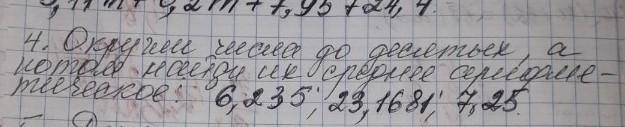 ,2m + 7,95 + 24,4.
4. Округли числа до десятых, а
потом найди их среднее арифме-
тическое: 6,235; 23,1681; 7,25.